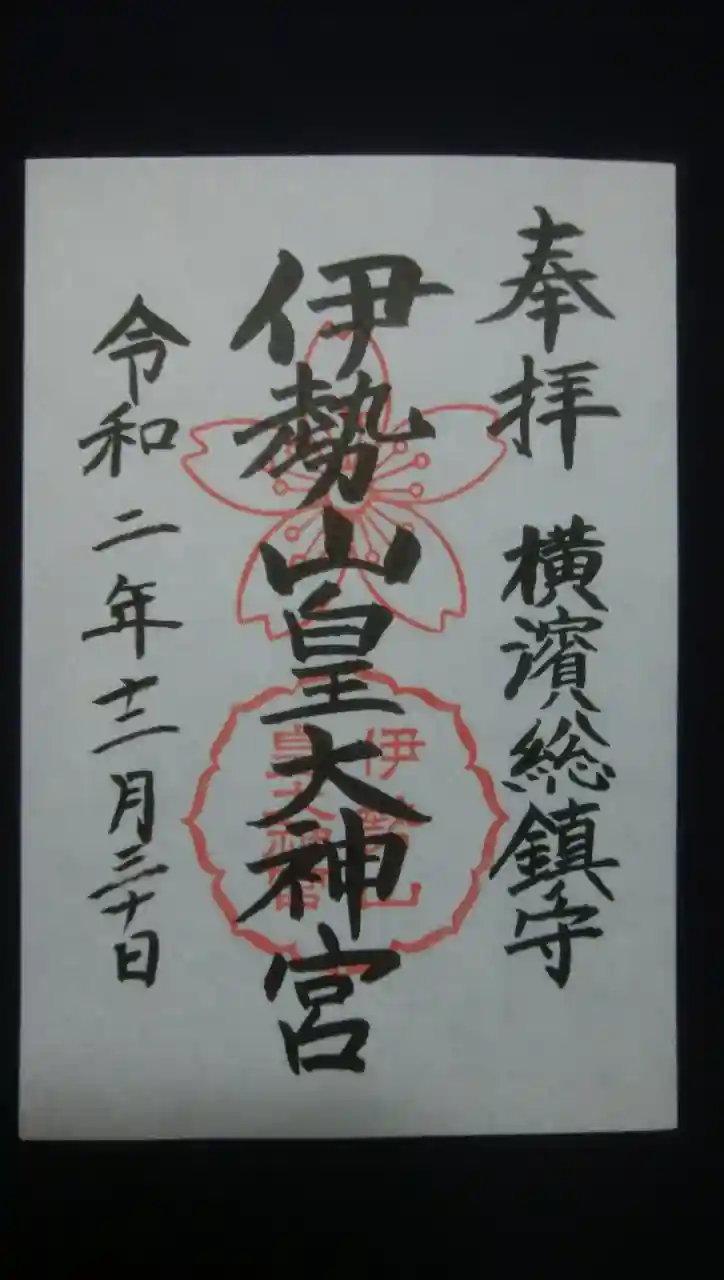 奉拝 横濱総鎮守
伊勢山皇大神宮
伊勢山
皇大神宮
令和二年十二月三十日